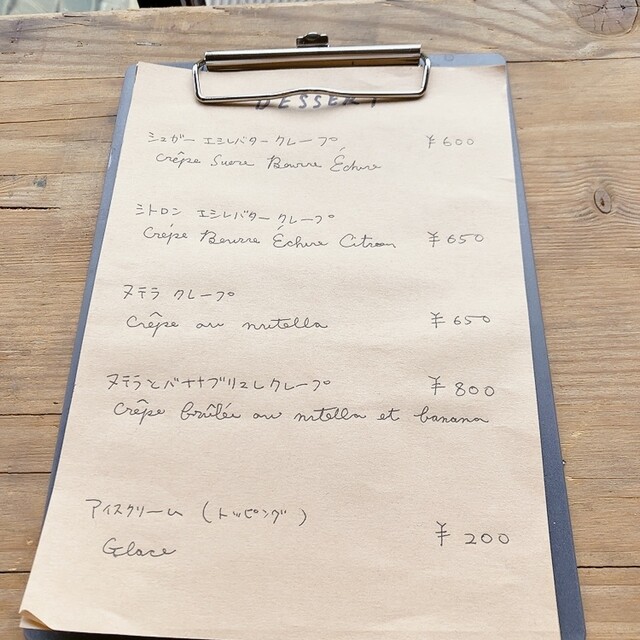 DESSERT
シュガー エシレバター クレープ ¥600
Crêpe Sucre Beurre Échire
シトロン エシレバター クレープ
Crêpe Beurre Échire Citron ¥650
ヌテラ クレープ
Crêpe au nutella ¥650
ヌテラとバナナブリュレクレープ ¥800
Crêpe brûlée au nutella et banana
アイスクリーム (トッピング)
Glace ¥200